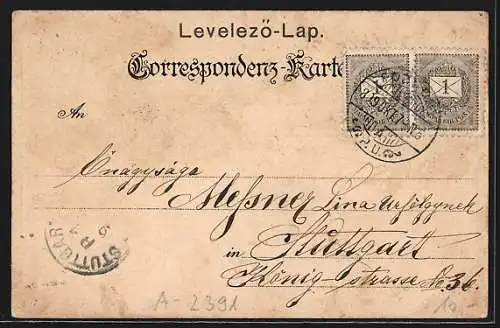 Levelező-Lap.
Correspondenz-Karte
1 1
An
Őnagysága
Messner Lina Urfölgynek
in Stuttgart
König-strasse No 36.
STUTTGAR.
A-2391
10.-